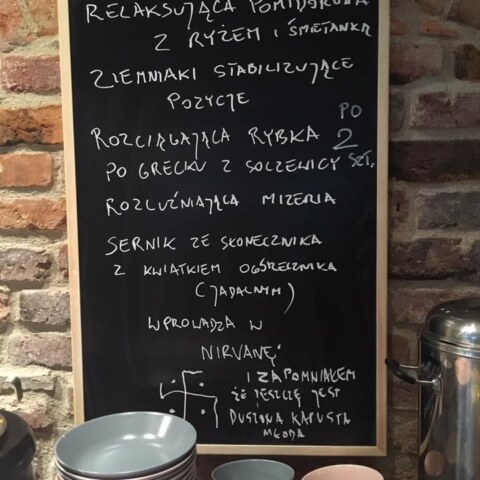 RELAKSUJĄCA POMIDOROWA
Z RYŻEM I ŚMIETANKĄ
ZIEMNIAKI STABILIZUJĄCE
POZYCJE
ROZCIĄGAJĄCA RYBKA PO 2 SZT.
PO GRECKU Z SOCZEWICY
ROZLUŹNIAJĄCA MIZERIA
SERNIK ZE SŁONECZNIKA
Z KWIATKIEM OGÓRECZNIKA
(JADALNYM)
WPROWADZA W
NIRVANĘ
I ZAPOMNIAŁEM
ŻE JESZCZE JEST
DUSZONA KAPUSTA
MŁODA